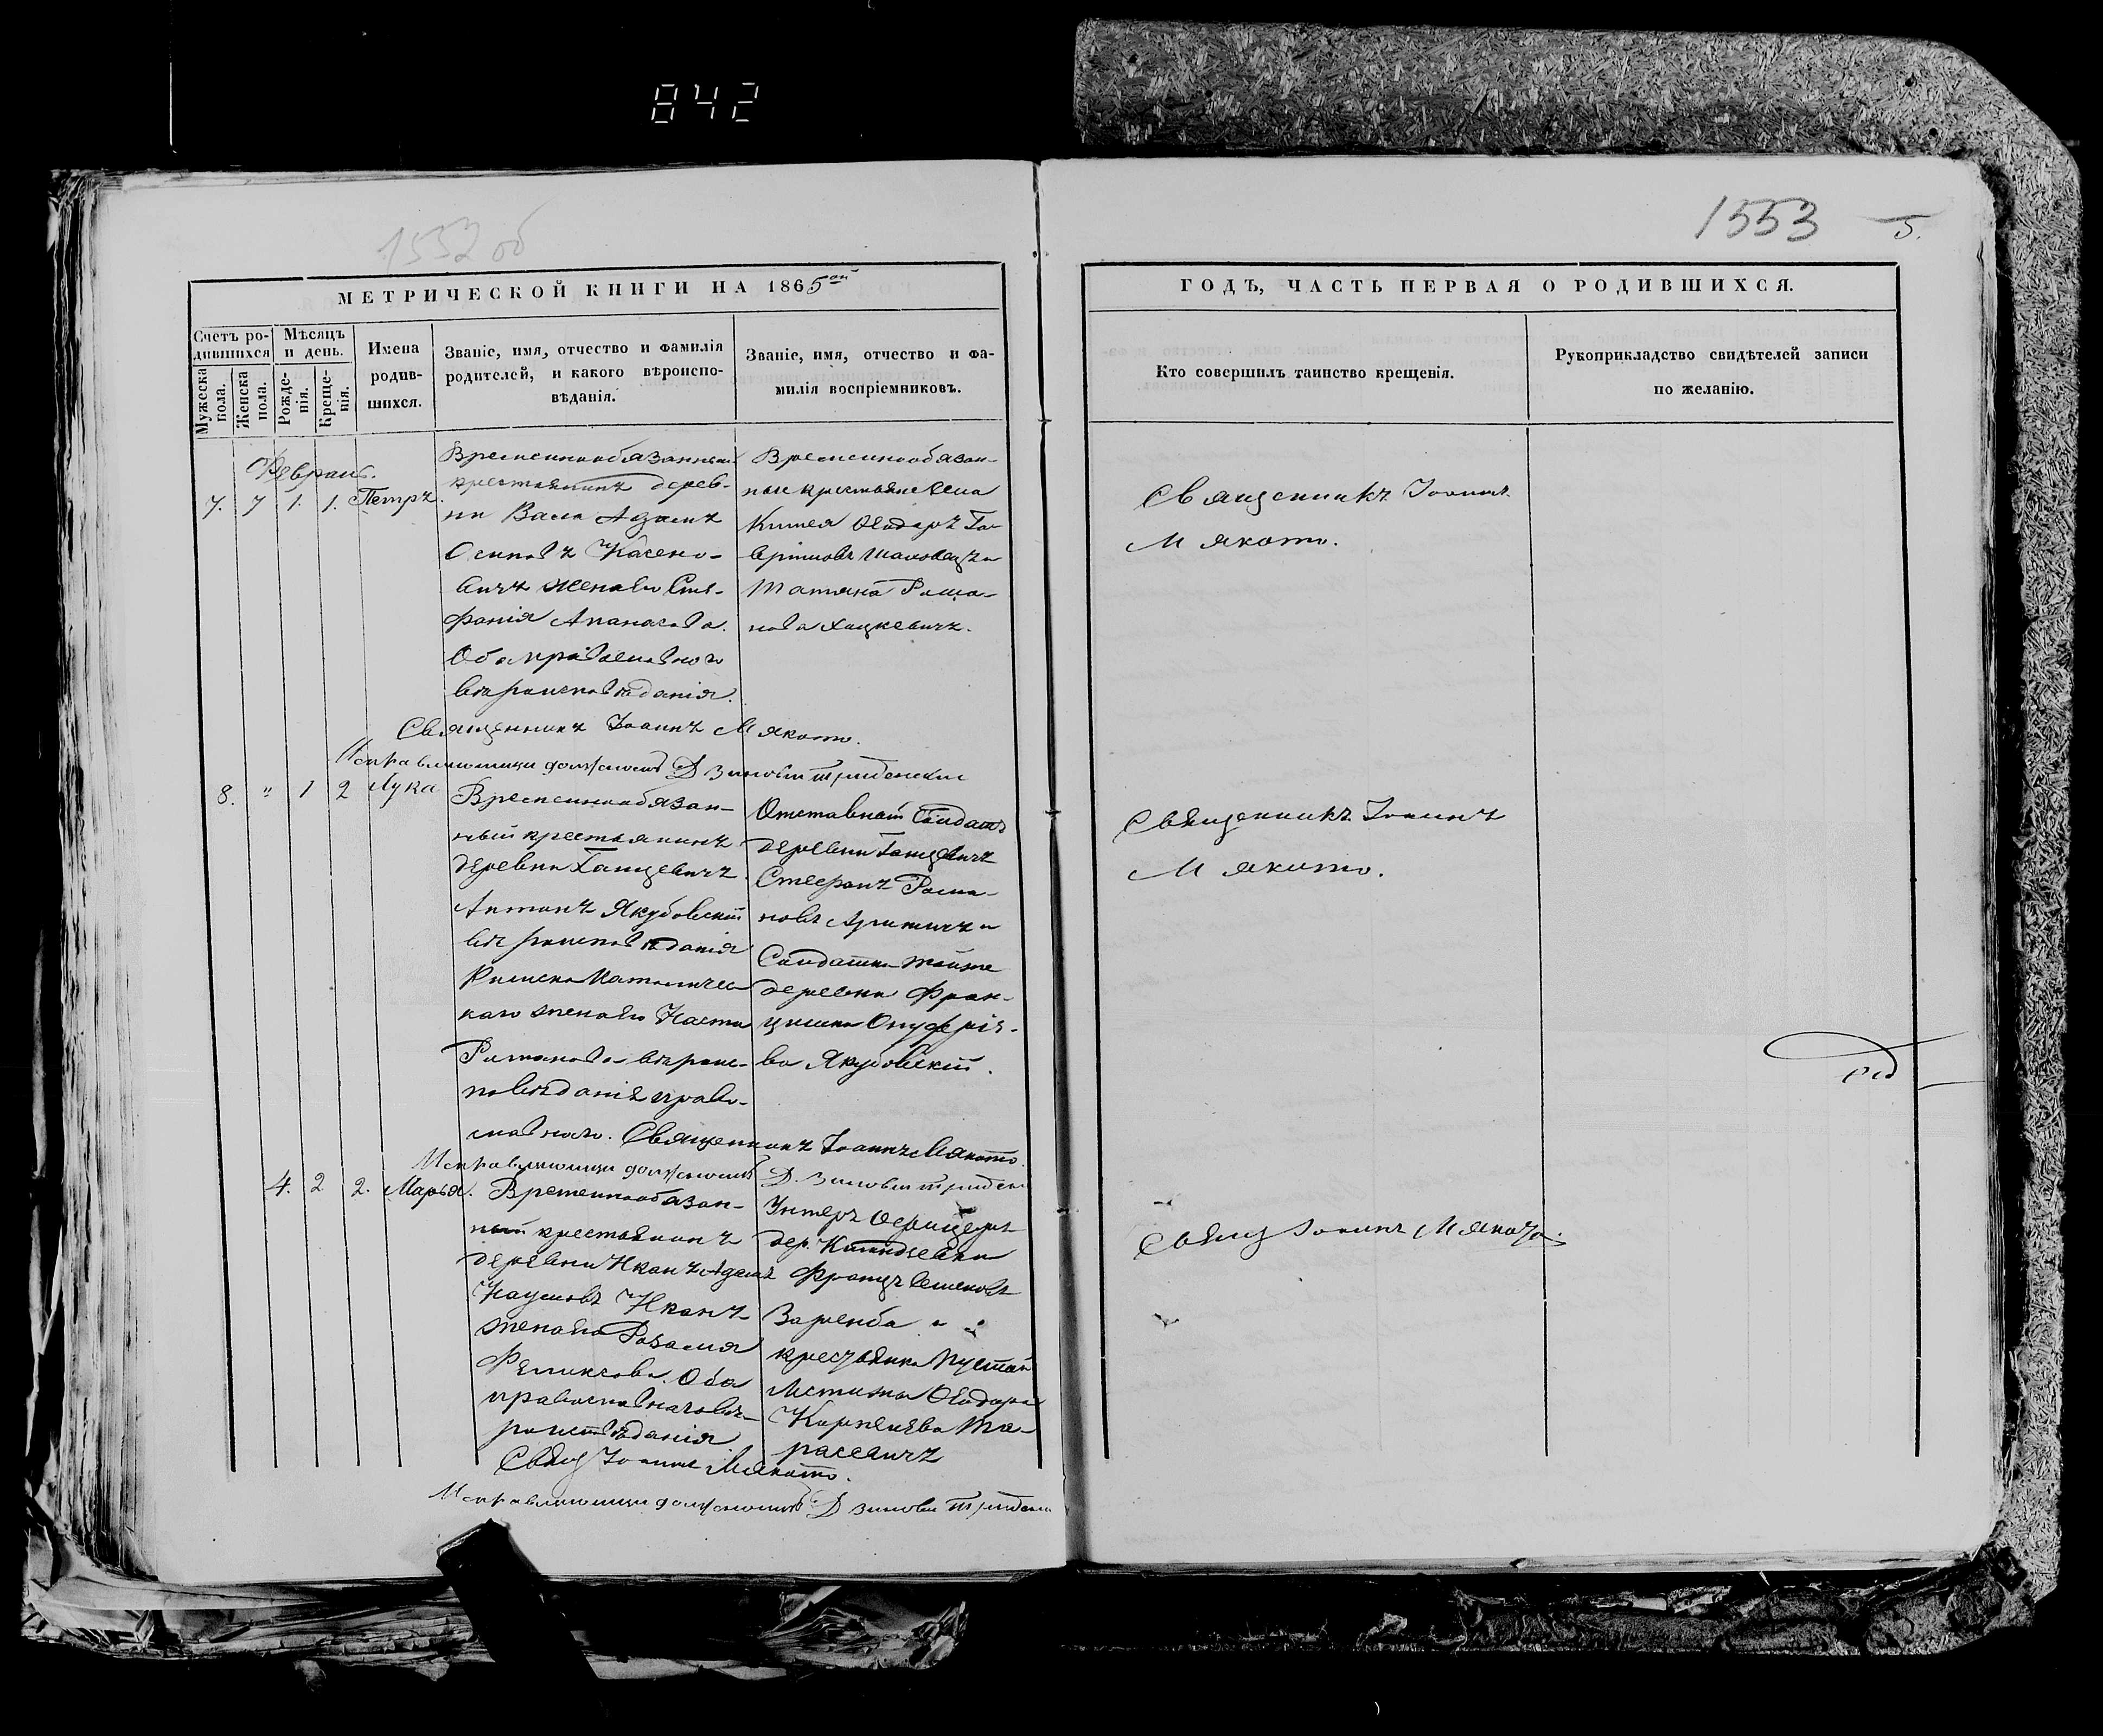 842
1552 об
1553
5.
МЕТРИЧЕСКОЙ КНИГИ НА 1865ой
ГОДЪ, ЧАСТЬ ПЕРВАЯ О РОДИВШИХСЯ.
Счетъ ро-
дившихся
Мужеска
пола.
Женска
пола.
Мѣсяцъ
и день.
Рожде-
нія.
Креще-
нія.
Имена
родив-
шихся.
Званіе, имя, отчество и фамилія
родителей, и какого вѣроиспо-
вѣданія.
Званіе, имя, отчество и фа-
милія воспріемниковъ.
Кто совершилъ таинство крещенія.
Рукоприкладство свидѣтелей записи
по желанію.
Февраль.
7. 7 1. 1. Петръ
Временнообязанный
крестьянинъ дерев-
ни Адамъ
Осиповъ
вичъ жена его Сте-
фанія Апанасова.
Оба православнаго
вѣроисповѣданія.
Временнообязан-
ные крестьяне села
Ѳеодоръ Га-
и
Татяна Рома-
нова Хацкевичъ.
Священникъ Іоаннъ
Мякото.
Священникъ Іоаннъ Мякото.
Исправляющій должность Д
8. " 1 2 Лука
Временнообязан-
ный крестьянинъ
деревни Ганцевичъ
Антонъ Якубовскій
вѣроисповѣданія
Римско Католичес
каго жена его Наста
Романова вѣроис-
повѣданія право-
славнаго. Священникъ Іоаннъ Мякото.
Отставный Солдатъ
деревни Ганцевичъ
Стефанъ Рома-
новъ и
Солдатка тойже
деревни Фран-
цишка Онуфріе-
ва Якубовскій.
Священникъ Іоаннъ
Мякото.
Исправляющій должность Д.
4. 2 2. Марья.
Временнообязан-
ный крестьянинъ
деревни Адамъ
Наумовъ
жена его Розалія
Феликсова. Оба
православнаго вѣ-
роисповѣданія.
Свящ Іоаннъ Мякото.
Унтеръ Офицеръ
дер.
Францъ Семеновъ
Заремба и
крестьянка Пустой
Ѳеодора
Карпѣева Та-
расевичъ
Свящ Іоаннъ Мякото.
Исправляющій должность Д